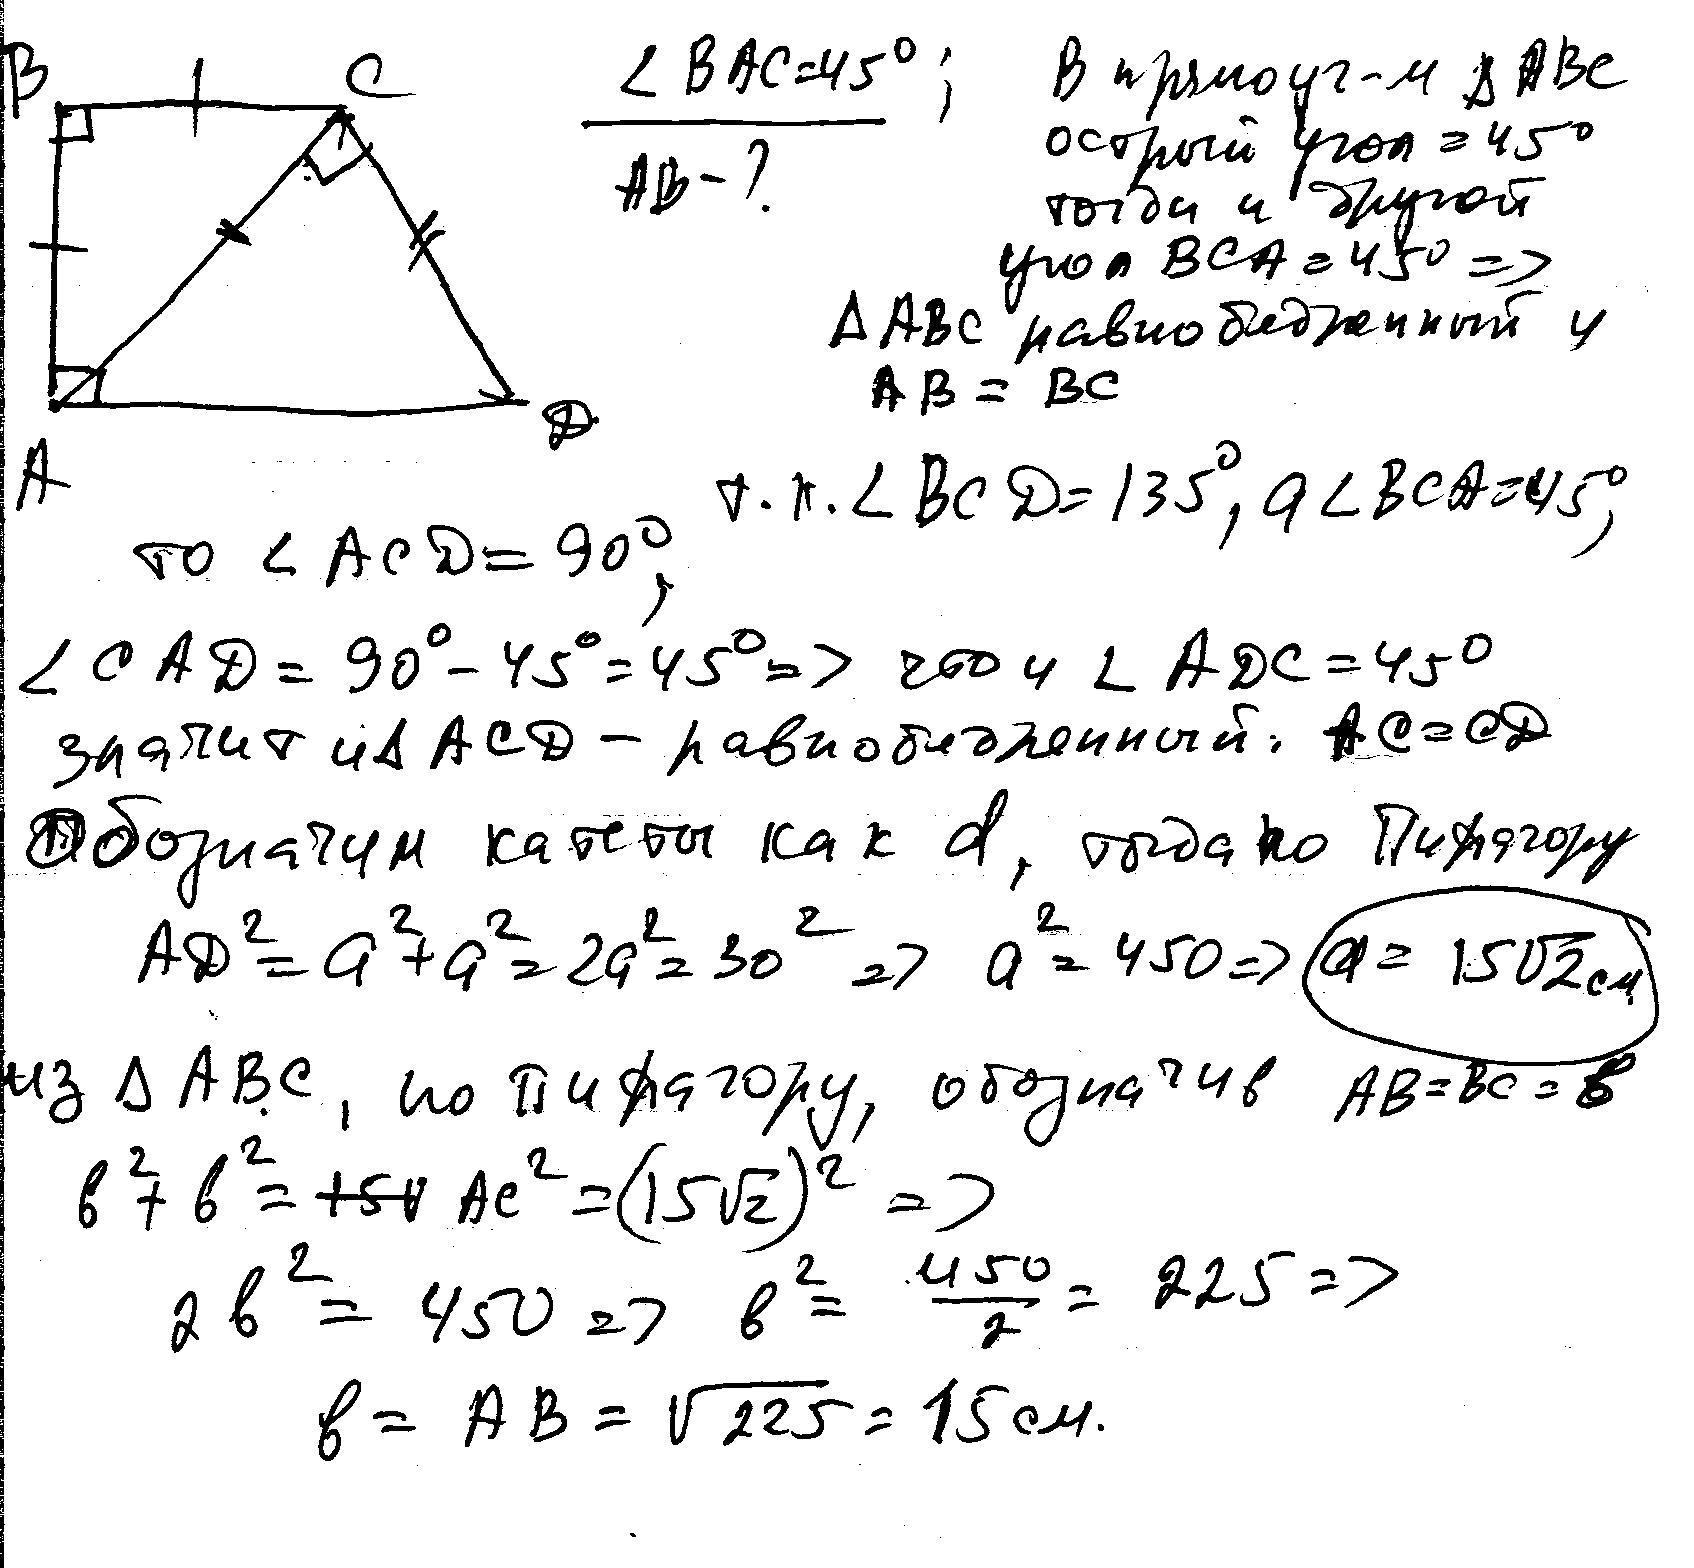 B C
∠ BAC = 45° ;
AB - ?
В прямоуг-м Δ ABC
острый угол = 45°
тогда и другой
угол BCA = 45° =>
Δ ABC равнобедренный и
AB = BC
A D
т.к. ∠ BCD = 135°, а ∠ BCA = 45°,
то ∠ ACD = 90°,
∠ CAD = 90° - 45° = 45° => что и ∠ ADC = 45°
значит и Δ ACD - равнобедренный. AC = CD
Обозначим катеты как a, тогда по Пифагору
AD² = a² + a² = 2a² = 30² => a² = 450 => a = 15√2 см
из Δ ABC, по Пифагору, обозначив AB = BC = в
в² + в² = AC² = (15√2)² =>
2в² = 450 => в² = 450/2 = 225 =>
в = AB = √225 = 15 см.